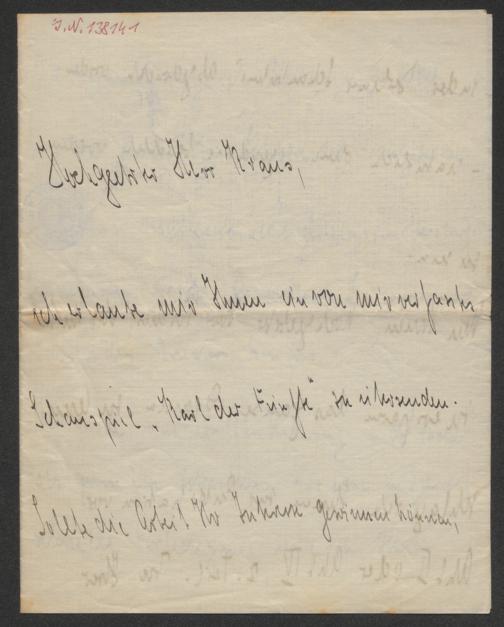 I.N. 138141
Hochgeehrter Herr Kraus,
ich erlaube mir Ihnen ein von mir verfasstes
Schauspiel „Karl der Fünfte" zu übersenden.
Sollte die Arbeit Ihr Interesse gewinnen können,